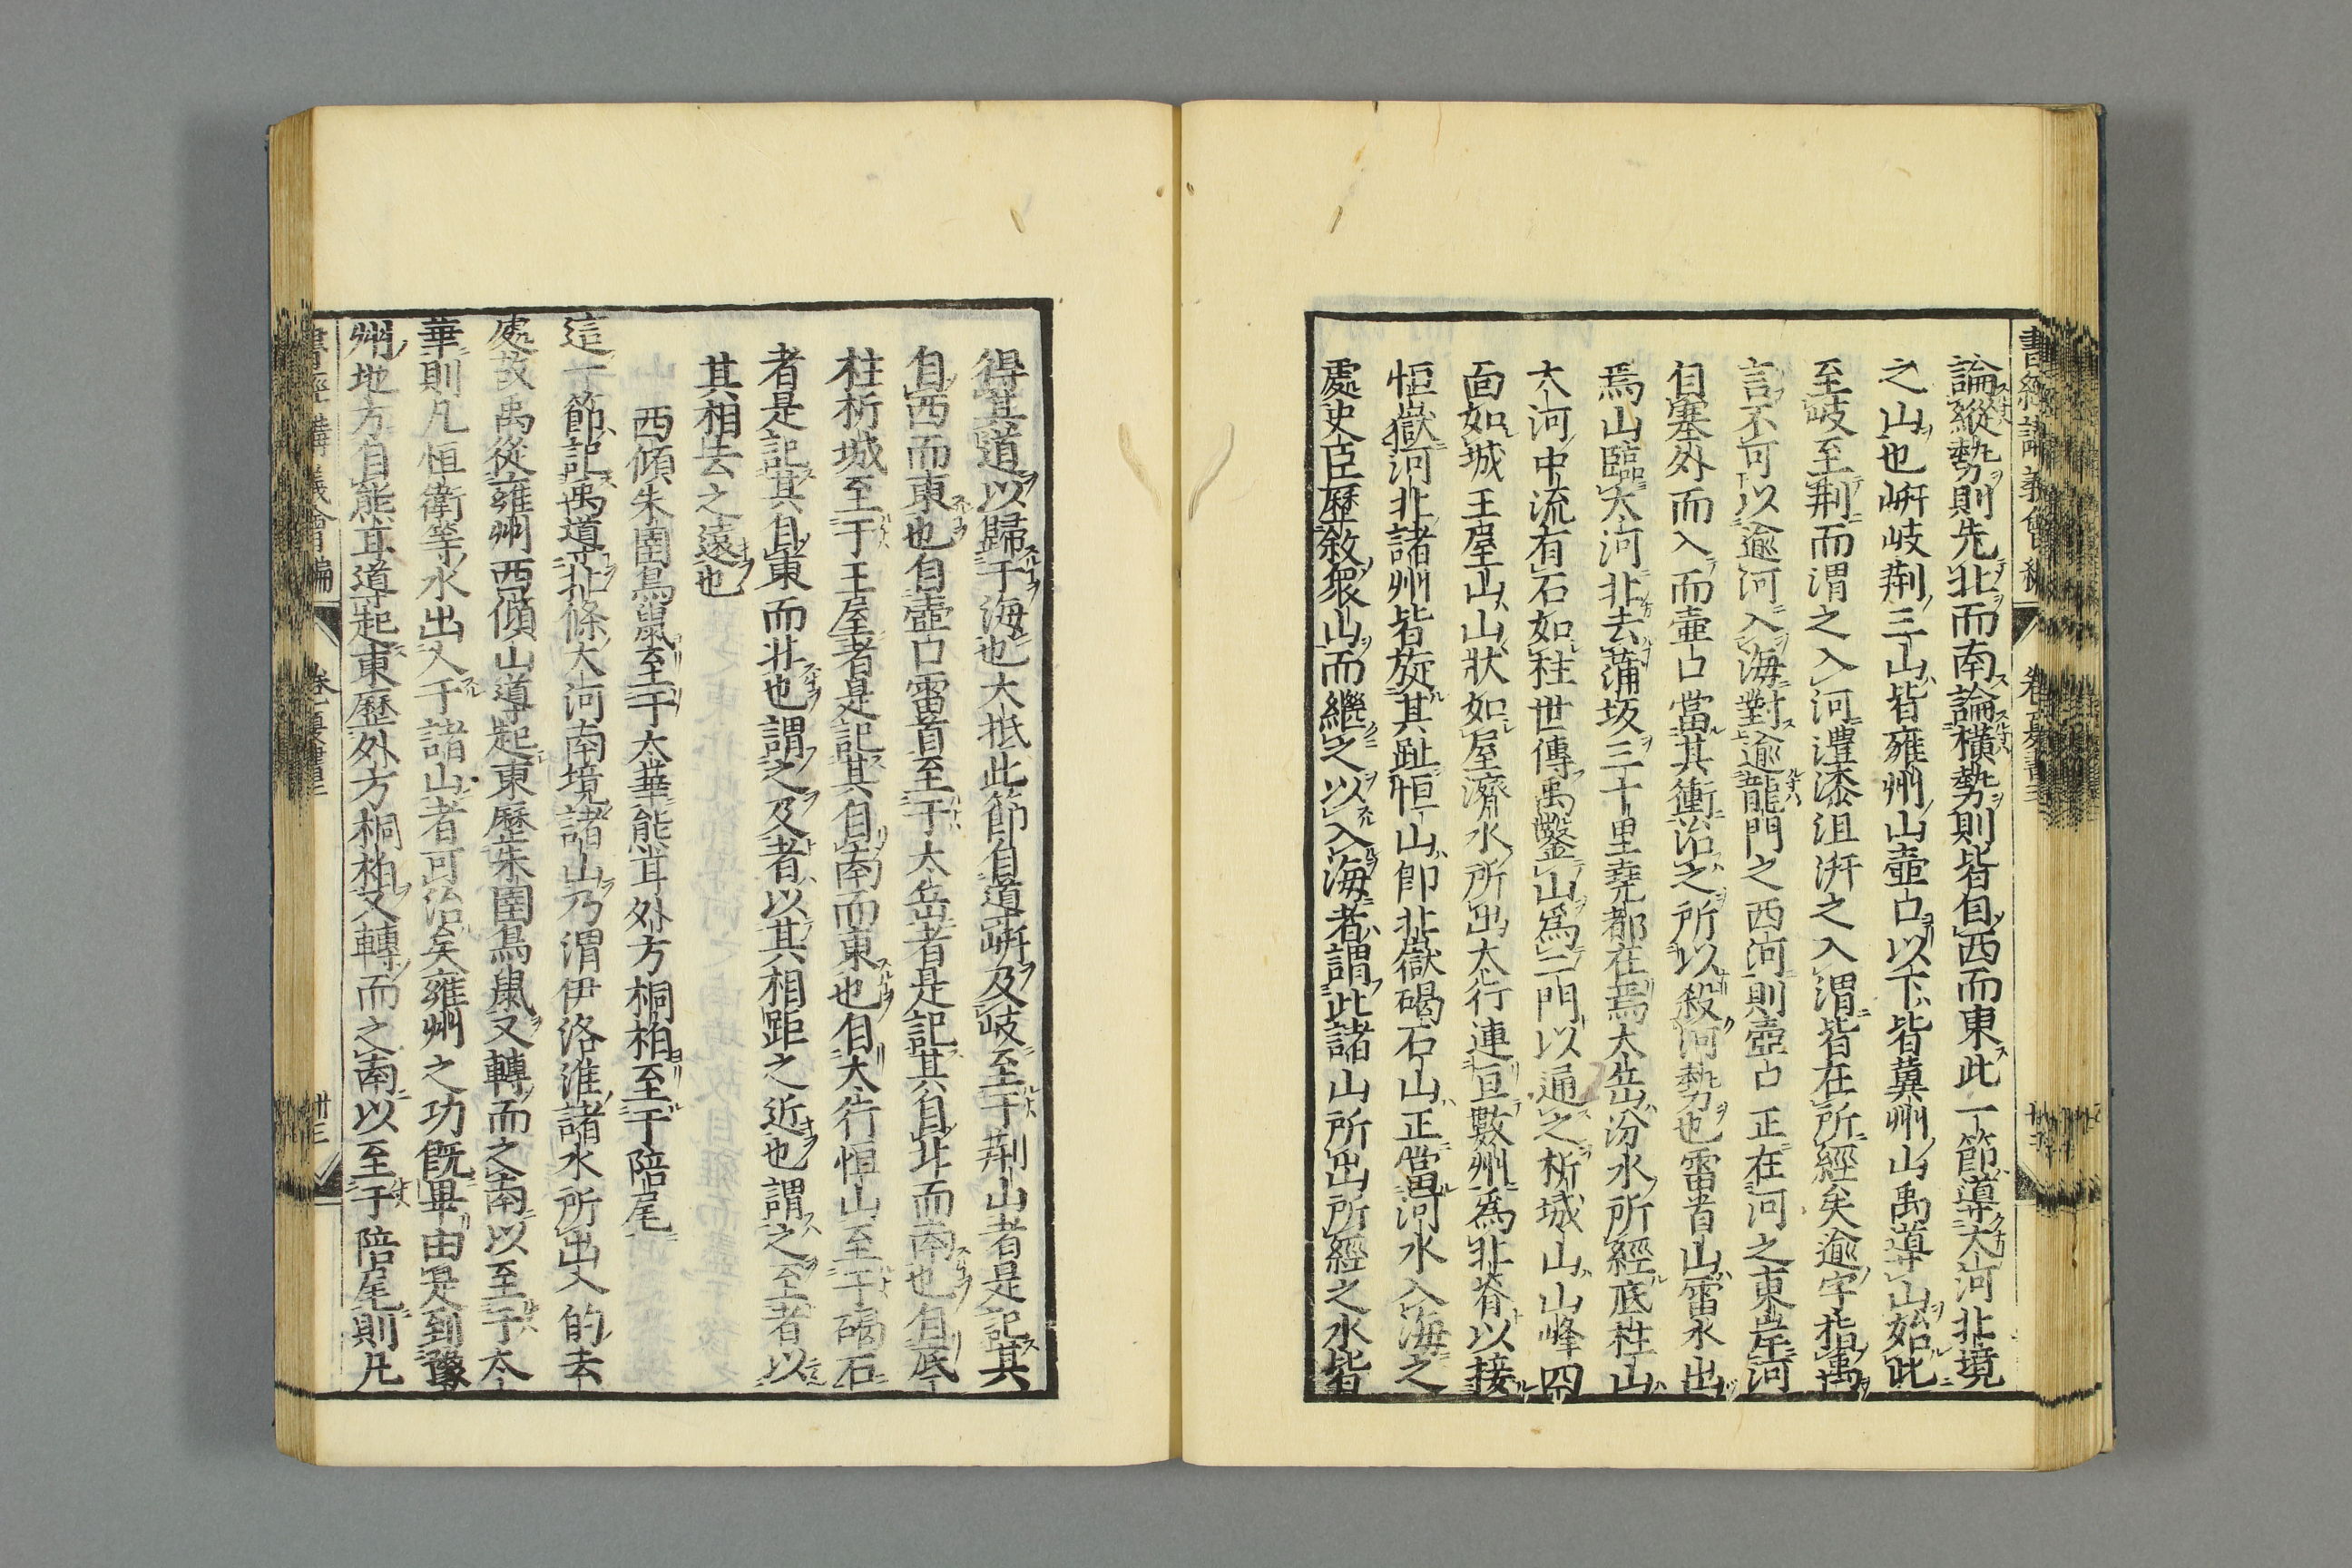 書經講義會編 卷三夏書
論縱勢則先北而南論橫勢則皆自西而東此一節導大河北境
之山也岍岐荆三山皆雍州山壺口以下皆冀州山禹導山始此
至岐至荆而渭之入河灃漆沮汧之入渭皆在所經矣逾字指禹
言不可以逾河入海對逾龍門之西河則壺口正在河之東岸河
自塞外而入而壺口當其衝治之所以殺河勢也雷首山雷水出
焉山臨大河北去蒲坂三十里堯都在焉太岳汾水所經底柱山
大河中流有石如柱世傳禹鑿山爲三門以通之析城山山峰四
面如城王屋山山狀如屋濟水所出大行連亘數州爲北脊以接
恒嶽河北諸州皆旋其趾恒山即北嶽碣石山正當河水入海之
處史臣歷敘衆山而繼之以入海者謂此諸山所出所經之水皆
得其道以歸于海也大抵此節自導岍及岐至于荆山者是記其
自西而東也自壺口雷首至于太岳者是記其自北而南也自底
柱析城至于王屋者是記其自南而東也自大行恒山至于碣石
者是記其自東而北也謂之及者以其相距之近也謂之至者以
其相去之遠也
西傾朱圉鳥鼠至于太華熊耳外方桐柏至于陪尾
這一節記禹導北條大河南境諸山乃渭伊洛淮諸水所出入的去
處故禹從雍州西傾山導起東歷朱圉鳥鼠又轉而之南以至于太
華則凡恒衛等水出入于諸山者可治矣雍州之功既畢由是到豫
州地方自熊耳導起東歷外方桐柏又轉而之南以至于陪尾則凡
書經講義會編 卷三夏書 卅三